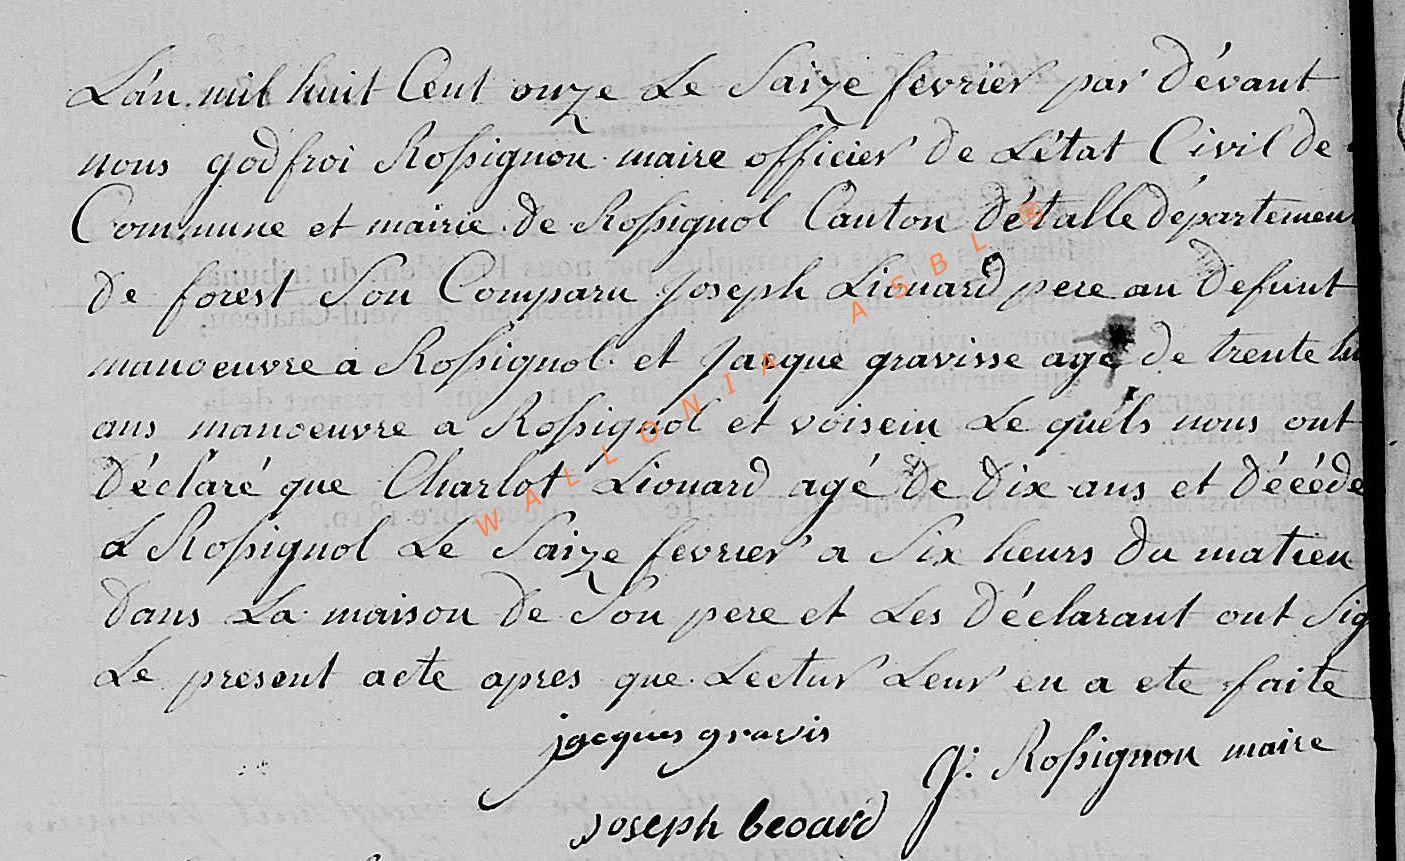 L'an mil huit Cent onze Le Saize fevrier par dévant
nous godfroi Rossignon maire officier de L'état Civil de
Commune et mairie de Rossignol Canton détalle département
de forest Son Comparu joseph Liouard pere au defunt
manoeuvre a Rossignol et Jacque gravisse agé de trente
ans manoeuvre a Rossignol et voisein Le quéls nous ont
Déclaré que Charlot Liouard agé de dix ans et décédé
a Rossignol Le Saize fevrier a Six heurs du matien
dans La maison de Son pere et Les déclarant ont Sig
Le present acte apres que Lectur Leur en a ete faite
jacques gravis
g. Rossignon maire
joseph leoard
WALLONIA ASBL ®